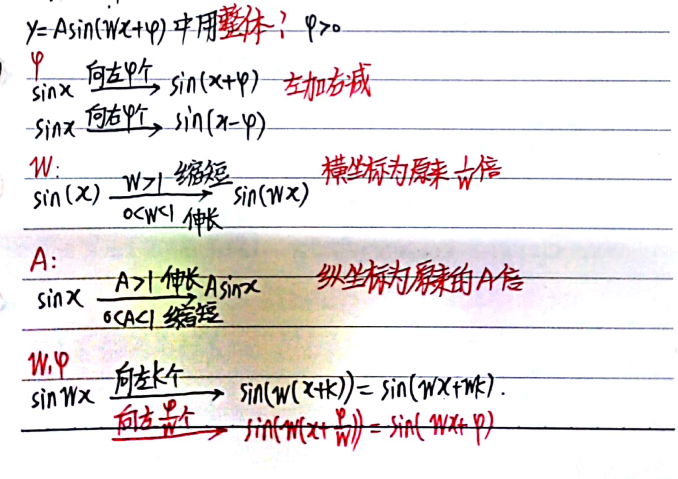 y=Asin(Wx+φ)中用整体! φ>0
φ
sinx 向左φ个→ sin(x+φ) 左加右减
sinx 向右φ个→ sin(x-φ)
W:
sin(x) W>1 缩短→ sin(Wx) 横坐标为原来1/W倍
0<W<1 伸长
A:
sinx A>1 伸长→ Asinx 纵坐标为原来的A倍
0<A<1 缩短
W,φ
sinWx 向左k个→ sin(W(x+k))=sin(Wx+Wk).
向左φ/W个→ sin(W(x+φ/W))=sin(Wx+φ)